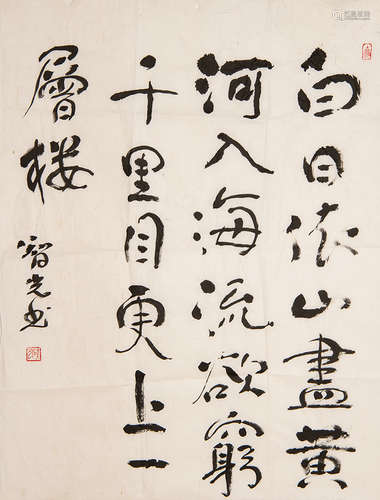 白日依山盡黄
河入海流欲窮
千里目更上一
層樓
智光书